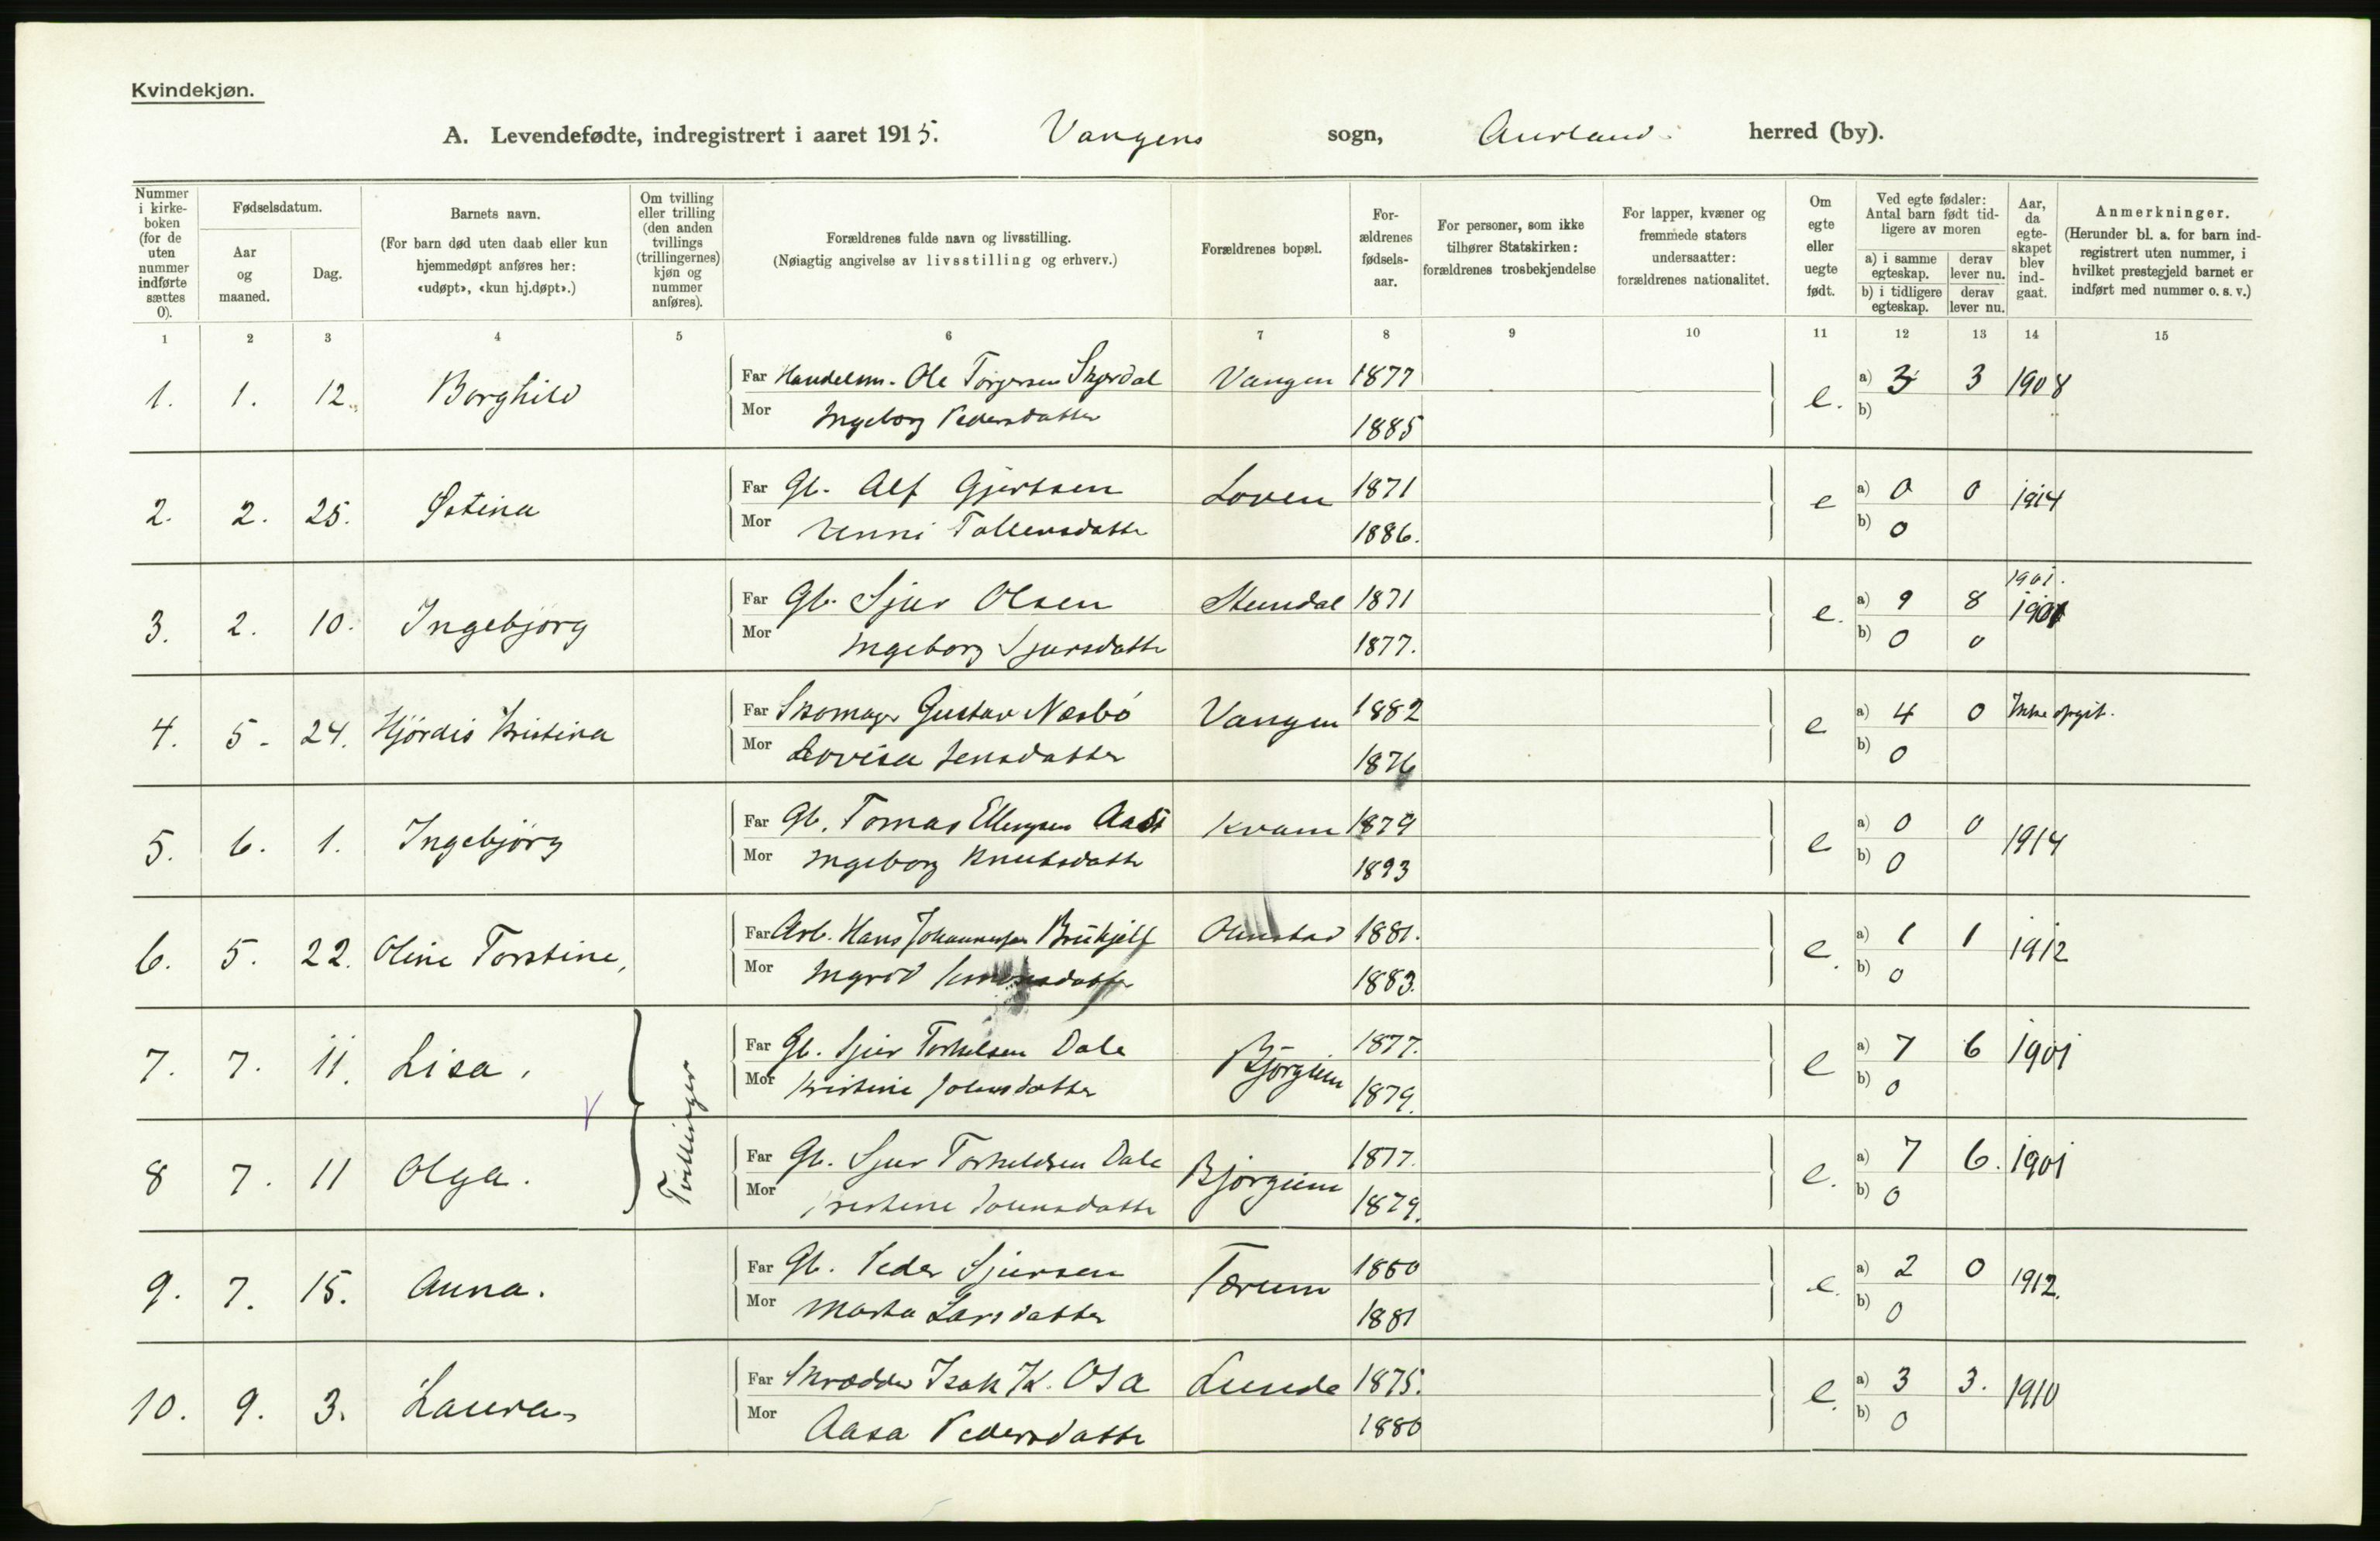 Kvindekjøn.
A. Levendefødte, indregistrert i aaret 1915. Vangens sogn, Aurland herred (by).
Nummer i kirke-boken (for de uten nummer indførte sættes 0).
Fødselsdatum.
Aar og maaned.
Dag.
Barnets navn.
(For barn død uten daab eller kun hjemmedøpt anføres her: «udøpt», «kun hj.døpt».)
Om tvilling eller trilling (den anden tvillings (trillingernes) kjøn og nummer anføres).
Forældrenes fulde navn og livsstilling.
(Nøiagtig angivelse av livsstilling og erhverv.)
Forældrenes bopæl.
For-ældrenes fødsels-aar.
For personer, som ikke tilhører Statskirken: forældrenes trosbekjendelse
For lapper, kvæner og fremmede staters undersaatter: forældrenes nationalitet.
Om egte eller uegte født.
Ved egte fødsler: Antal barn født tid-ligere av moren
a) i samme egteskap. derav lever nu.
b) i tidligere egteskap. derav lever nu.
Aar, da egte-skapet blev ind-gaat.
Anmerkninger.
(Herunder bl. a. for barn ind-registrert uten nummer, i hvilket prestegjeld barnet er indført med nummer o. s. v.)
1 2 3 4 5 6 7 8 9 10 11 12 13 14 15
1. 1. 12. Borghild Far Handelsm. Ole Torgersen Skjerdal Vangen 1877 e. a) 3 3 1908
Mor Ingeborg Pedersdatter 1885 b)
2. 2. 25. Far Gb. Alf Gjertsen Loven 1871 e a) 0 0 1914
Mor 1886. b) 0
3. 2. 10. Ingebjørg Far Gb. Sjur Olsen Stundal 1871 e. a) 9 8 1901. 1901
Mor Ingeborg Sjursdatter 1877. b) 0 0
4. 5. 24. Hjørdis Kristina Far Skomager Gustav Nesbø Vangen 1882 e a) 4 0 Ikke opgit.
Mor Lovisa Jensdatter 1876 b) 0
5. 6. 1. Ingebjørg Far Gb. Tomas Ellingsen Kvam 1879 e a) 0 0 1914
Mor Ingeborg Knutsdatter 1893 b) 0
6. 5. 22. Oline Torstine, Far Arb. Hans Johannessen Onstad 1881. e. a) 1 1 1912
Mor Ingrid 1883. b) 0
7. 7. 11. Lisa. Tvillinger Far Gb. Sjur Torkelsen Dale Bjørgum 1877. e a) 7 6 1901
Mor Kristine Johnsdatter 1879. b) 0
8 7. 11 Olga. Far Gb. Sjur Torkeldsen Dale Bjørgum 1877. e. a) 7 6. 1901
Mor Kristine Johnsdatter 1879. b) 0
9. 7. 15. Anna. Far Gb. Peder Sjursen Terum 1880 e. a) 2 0 1912.
Mor Marta Larsdatter 1881 b) 0
10. 9. 3. Laura Far Skrædder Isak K. Osa Lunde 1875. e. a) 3 3. 1910
Mor Aasa Pedersdatter 1880 b) 0